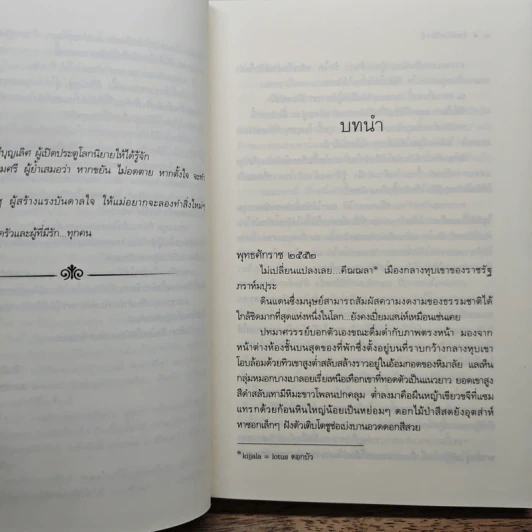 บุญเลิศ ผู้เปิดประตูโลกนิยายให้ได้รู้จัก
มศรี ผู้ย้ำเสมอว่า หากขยัน ไม่อดตาย หากตั้งใจ จะทำ
ผู้สร้างแรงบันดาลใจ ให้แม่อยากจะลองทำสิ่งใหม่ๆ
ครัวและผู้ที่มีรัก...ทุกคน
บทนำ
พุทธศักราช ๒๕๕๒
ไม่เปลี่ยนแปลงเลย...คีฌฌลา* เมืองกลางหุบเขาของราชรัฐ
ภราห์มปุระ
ดินแดนซึ่งมนุษย์สามารถสัมผัสความงดงามของธรรมชาติได้
ใกล้ชิดมากที่สุดแห่งหนึ่งในโลก...ยังคงเปี่ยมเสน่ห์เหมือนเช่นเคย
ปทมาศวรรย์บอกตัวเองขณะดื่มด่ำกับภาพตรงหน้า มองจาก
หน้าต่างห้องชั้นบนสุดของที่พักซึ่งตั้งอยู่บนที่ราบกว้างกลางหุบเขา
โอบล้อมด้วยทิวเขาสูงต่ำสลับสล้างราวอยู่ในอ้อมกอดของหิมาลัย แลเห็น
กลุ่มหมอกบางเบาลอยเรี่ยเหนือเทือกเขาที่ทอดตัวเป็นแนวยาว ยอดเขาสูง
สีดำสลับเทามีหิมะขาวโพลนปกคลุม ต่ำลงมาคือผืนหญ้าเขียวขจีที่แซม
แทรกด้วยก้อนหินใหญ่น้อยเป็นหย่อมๆ ดอกไม้ป่าสีสดยังอุตส่าห์
หาซอกเล็กๆ ฝังตัวเติบโตชูช่อเบ่งบานอวดดอกสีสวย
*kijjala = lotus ดอกบัว